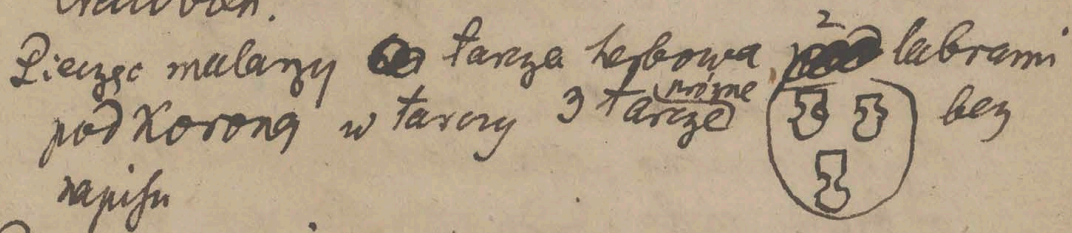 Pieczęc malarzy tarcza herbowa z labrami
pod Koroną w tarczy 3 próżne tarcze bez
napisu